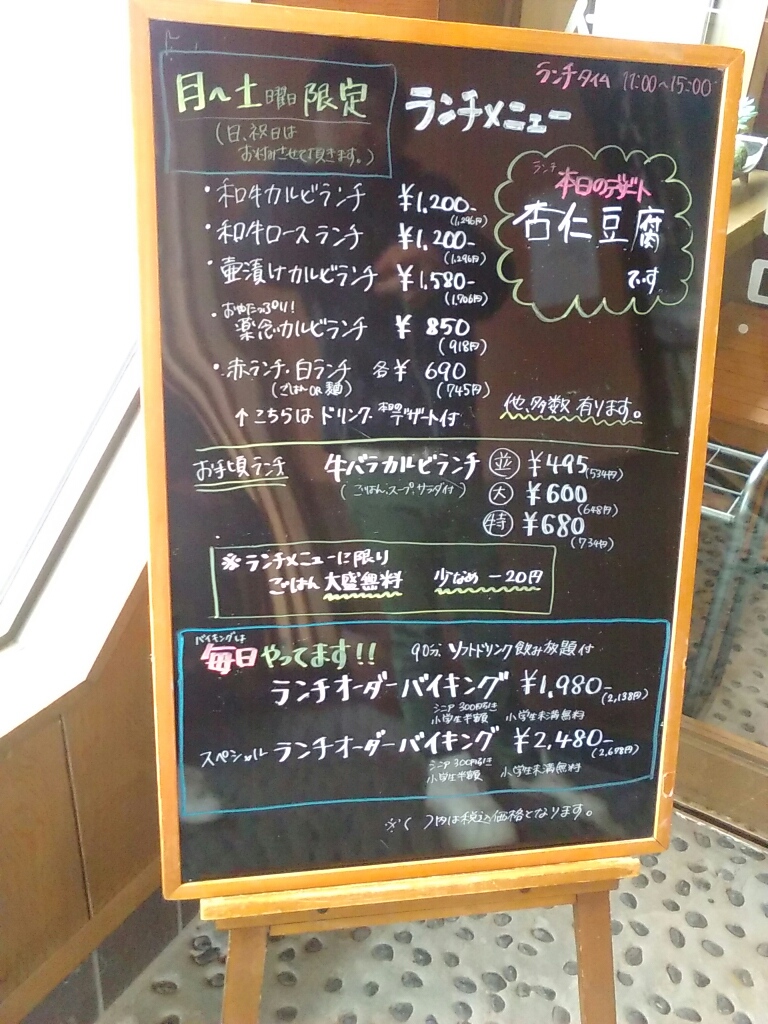 ランチタイム 11:00〜15:00
月〜土曜日限定
(日、祝日は
お休みさせて頂きます。)
ランチメニュー
ランチ
本日のデザート
杏仁豆腐
です。
・和牛カルビランチ ¥1,200-
(1,296円)
・和牛ロースランチ ¥1,200-
(1,296円)
・壺漬けカルビランチ ¥1,580-
(1,706円)
・おやさいたっぷり!
薬念カルビランチ ¥850
(918円)
・赤ランチ・白ランチ 各¥690
(ごはんOR麺) (745円)
↑こちらはドリンク・本日のデザート付
他、多数有ります。
お手頃ランチ 牛バラカルビランチ 並 ¥495(534円)
(ごはん、スープ、サラダ付) 大 ¥600
(648円)
特 ¥680
(734円)
※ランチメニューに限り
ごはん大盛無料 少なめ −20円
バイキングは
毎日やってます!! 90分 ソフトドリンク飲み放題付
ランチオーダーバイキング ¥1,980-(2,138円)
シニア300円引き
小学生半額 小学生未満無料
スペシャルランチオーダーバイキング ¥2,480-(2,678円)
シニア300円引き
小学生半額 小学生未満無料
※( )内は税込価格となります。